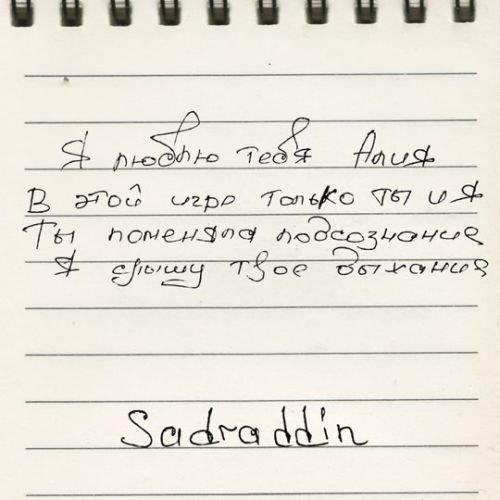 Я люблю тебя Алия
В этой игре только ты и я
Ты поменяла подсознание
Я слышу твое дыхание
Sadraddin